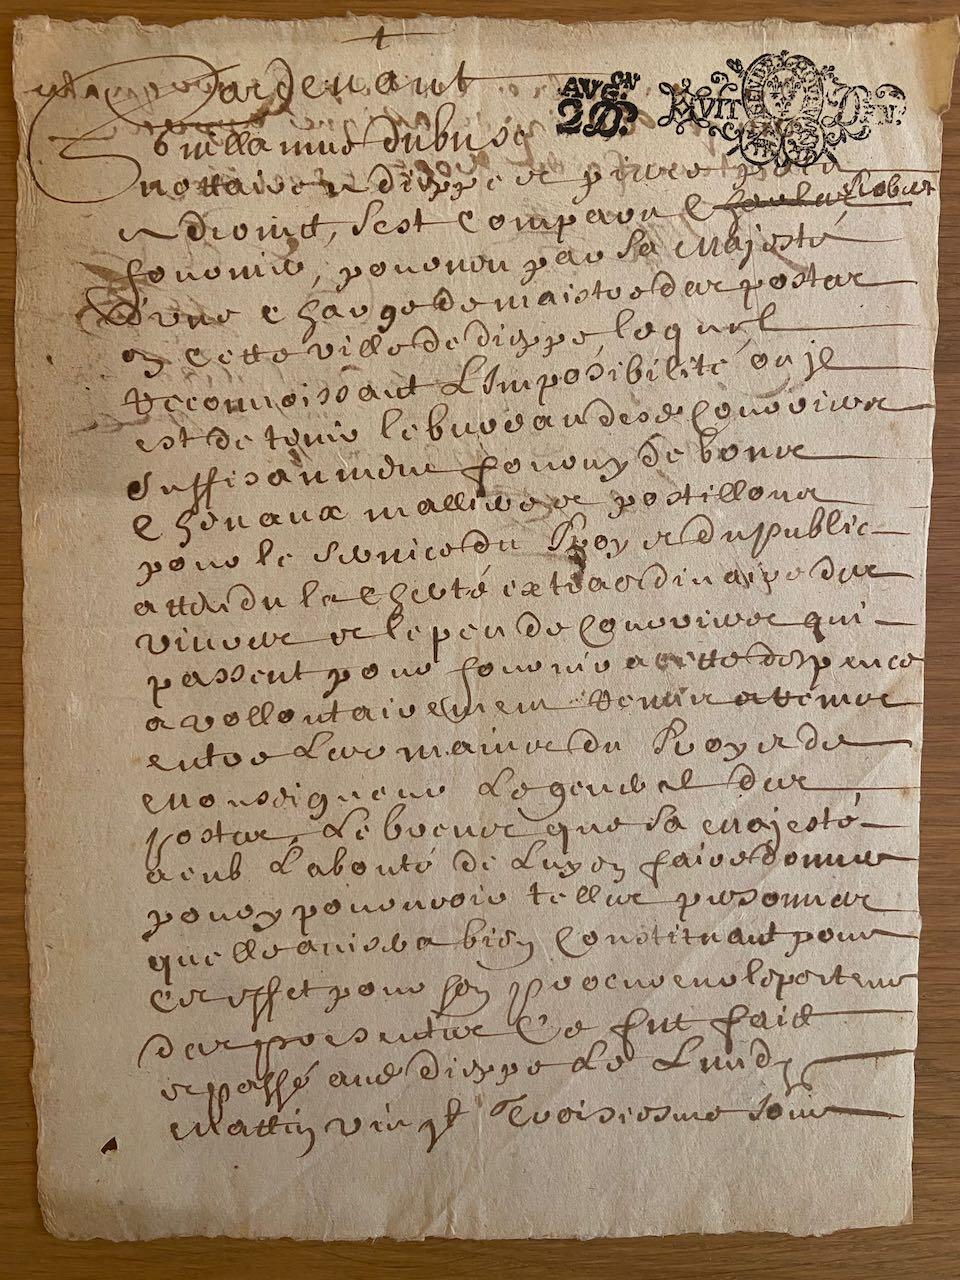 Pardevant
AVG.EN
2 D.
HUIT DEN.rs
GEN. DE
Guillaume Dubusc
nottaire a dieppe et pierre
endroict, s'est comparu Charles Robert
fournier, pourveu par sa Majesté
d'une charge de maistre des postes
en cette ville de dieppe, lequel
recconnoissant L'Imposibilité ou il
est de tenir le bureau desd Courriers
suffisamment fourny de bons
Chevaux malliers et postillons
pour le service du Roy et du public
attendu la Cherté extraordinaire des
vivres et le peu de Courriers qui
passent pour fournir a cette despence
a vollontairement remis
entre Les mains du Roy et de
Monseigneur Le general des
postes, Le brevet que sa Majesté
a eub La bonté de Luy en faire donner
pour y pourvoir telles personnes
quelle avisera bien Constituant pour
cet effet pour son Procureur le porteur
des presentes Ce fut faict
et passé aud dieppe Le Lundy
Mattin vingt Troisiesme Jour